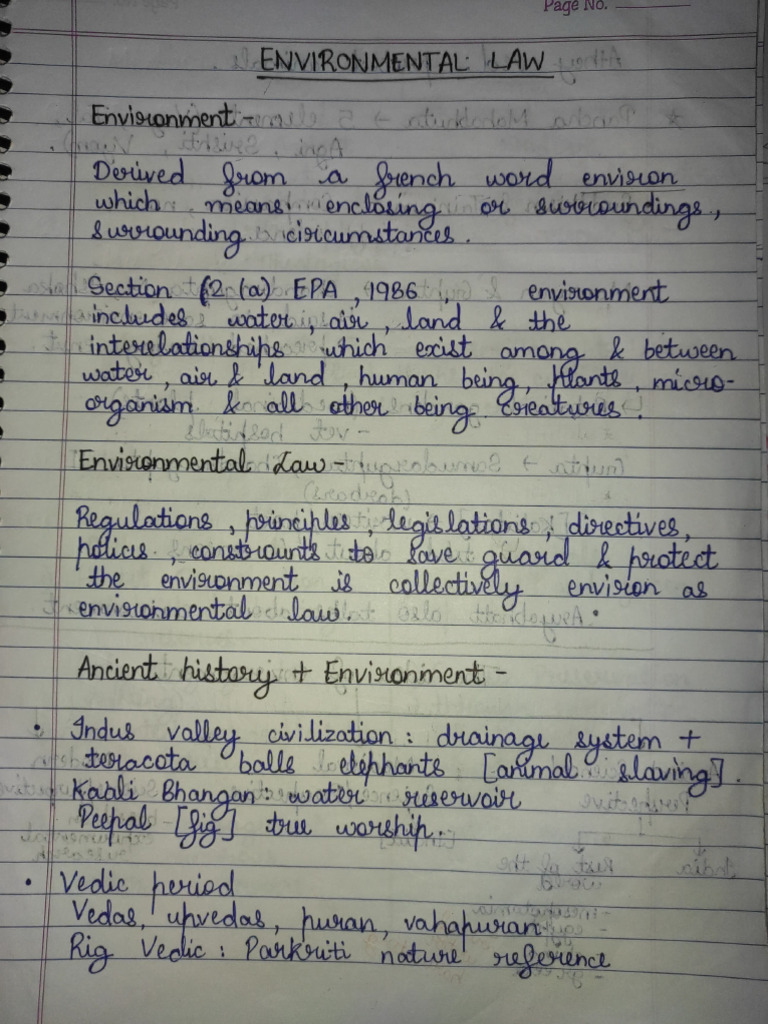 Page No.
ENVIRONMENTAL LAW
Environment -
Derived from a french word environ
which means enclosing or surroundings,
surrounding circumstances.
Section (2 (a) EPA, 1986, environment
includes water, air, land & the
interelationships which exist among & between
water, air & land, human being, plants, micro-
organism & all other being creatures.
Environmental Law -
Regulations, principles, legislations, directives,
policis, constraunts to save guard & protect
the environment is collectively environ as
environmental law.
Ancient history + Environment -
• Indus valley civilization: drainage system +
teracota balls elephants [animal slaving].
Kabli Bhangan: water reservoir
Peepal [fig] tree worship.
• Vedic period
Vedas, upvedas, puran, vahapuran
Rig Vedic: Parkriti nature reference